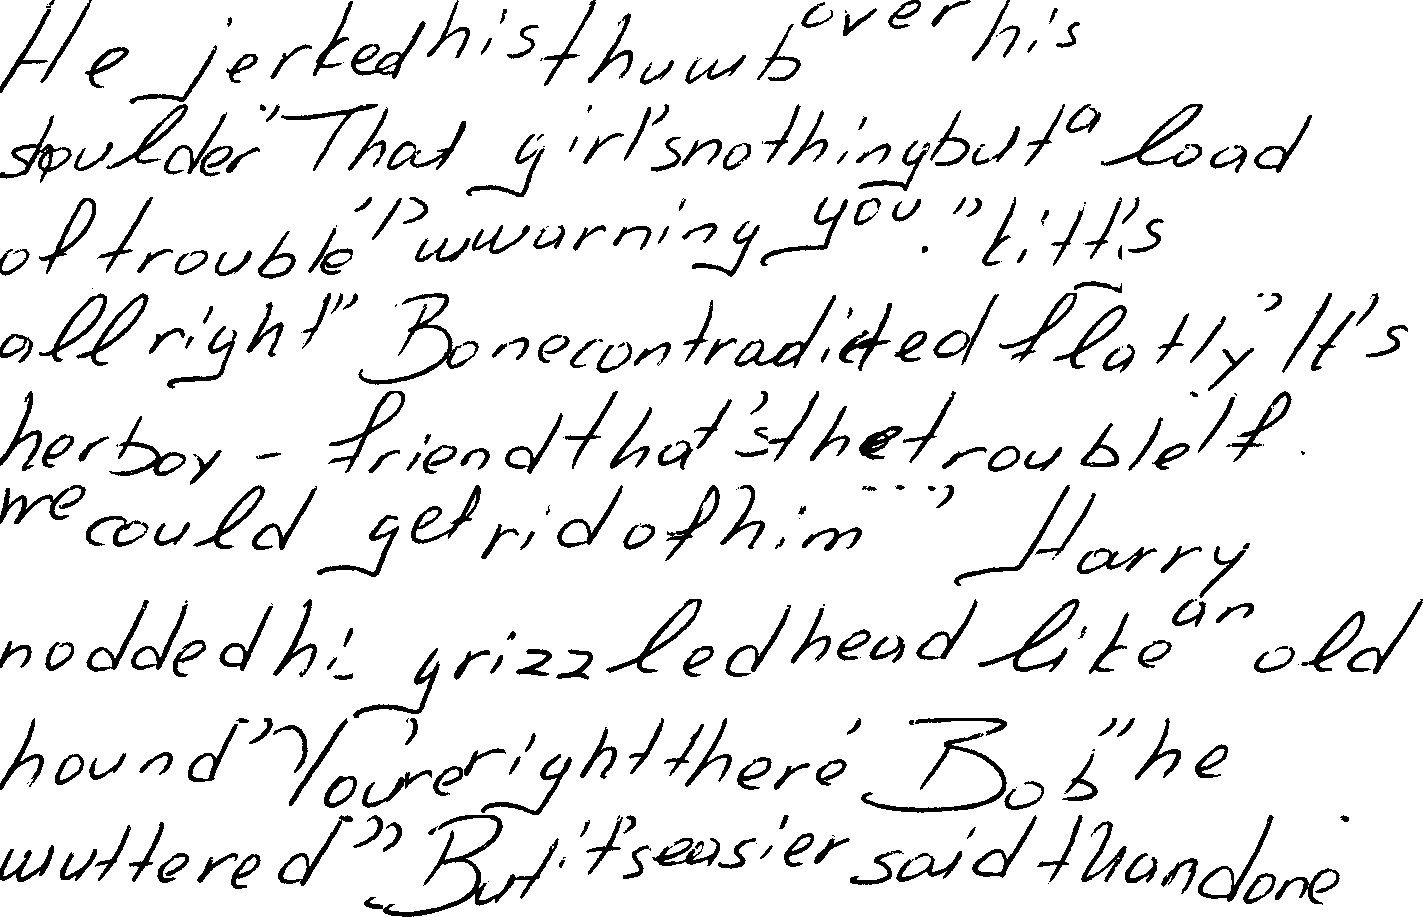 He jerked his thumb over his
shoulder "That girl's nothing but a load
of trouble I'warning you." "it's
all right" Bone contradicted flatly "It's
her boy-friend that's the trouble If
we could get rid of him ..." Harry
nodded his grizzled head like an old
hound "You're right there Bob" he
muttered "But it's easier said than done.